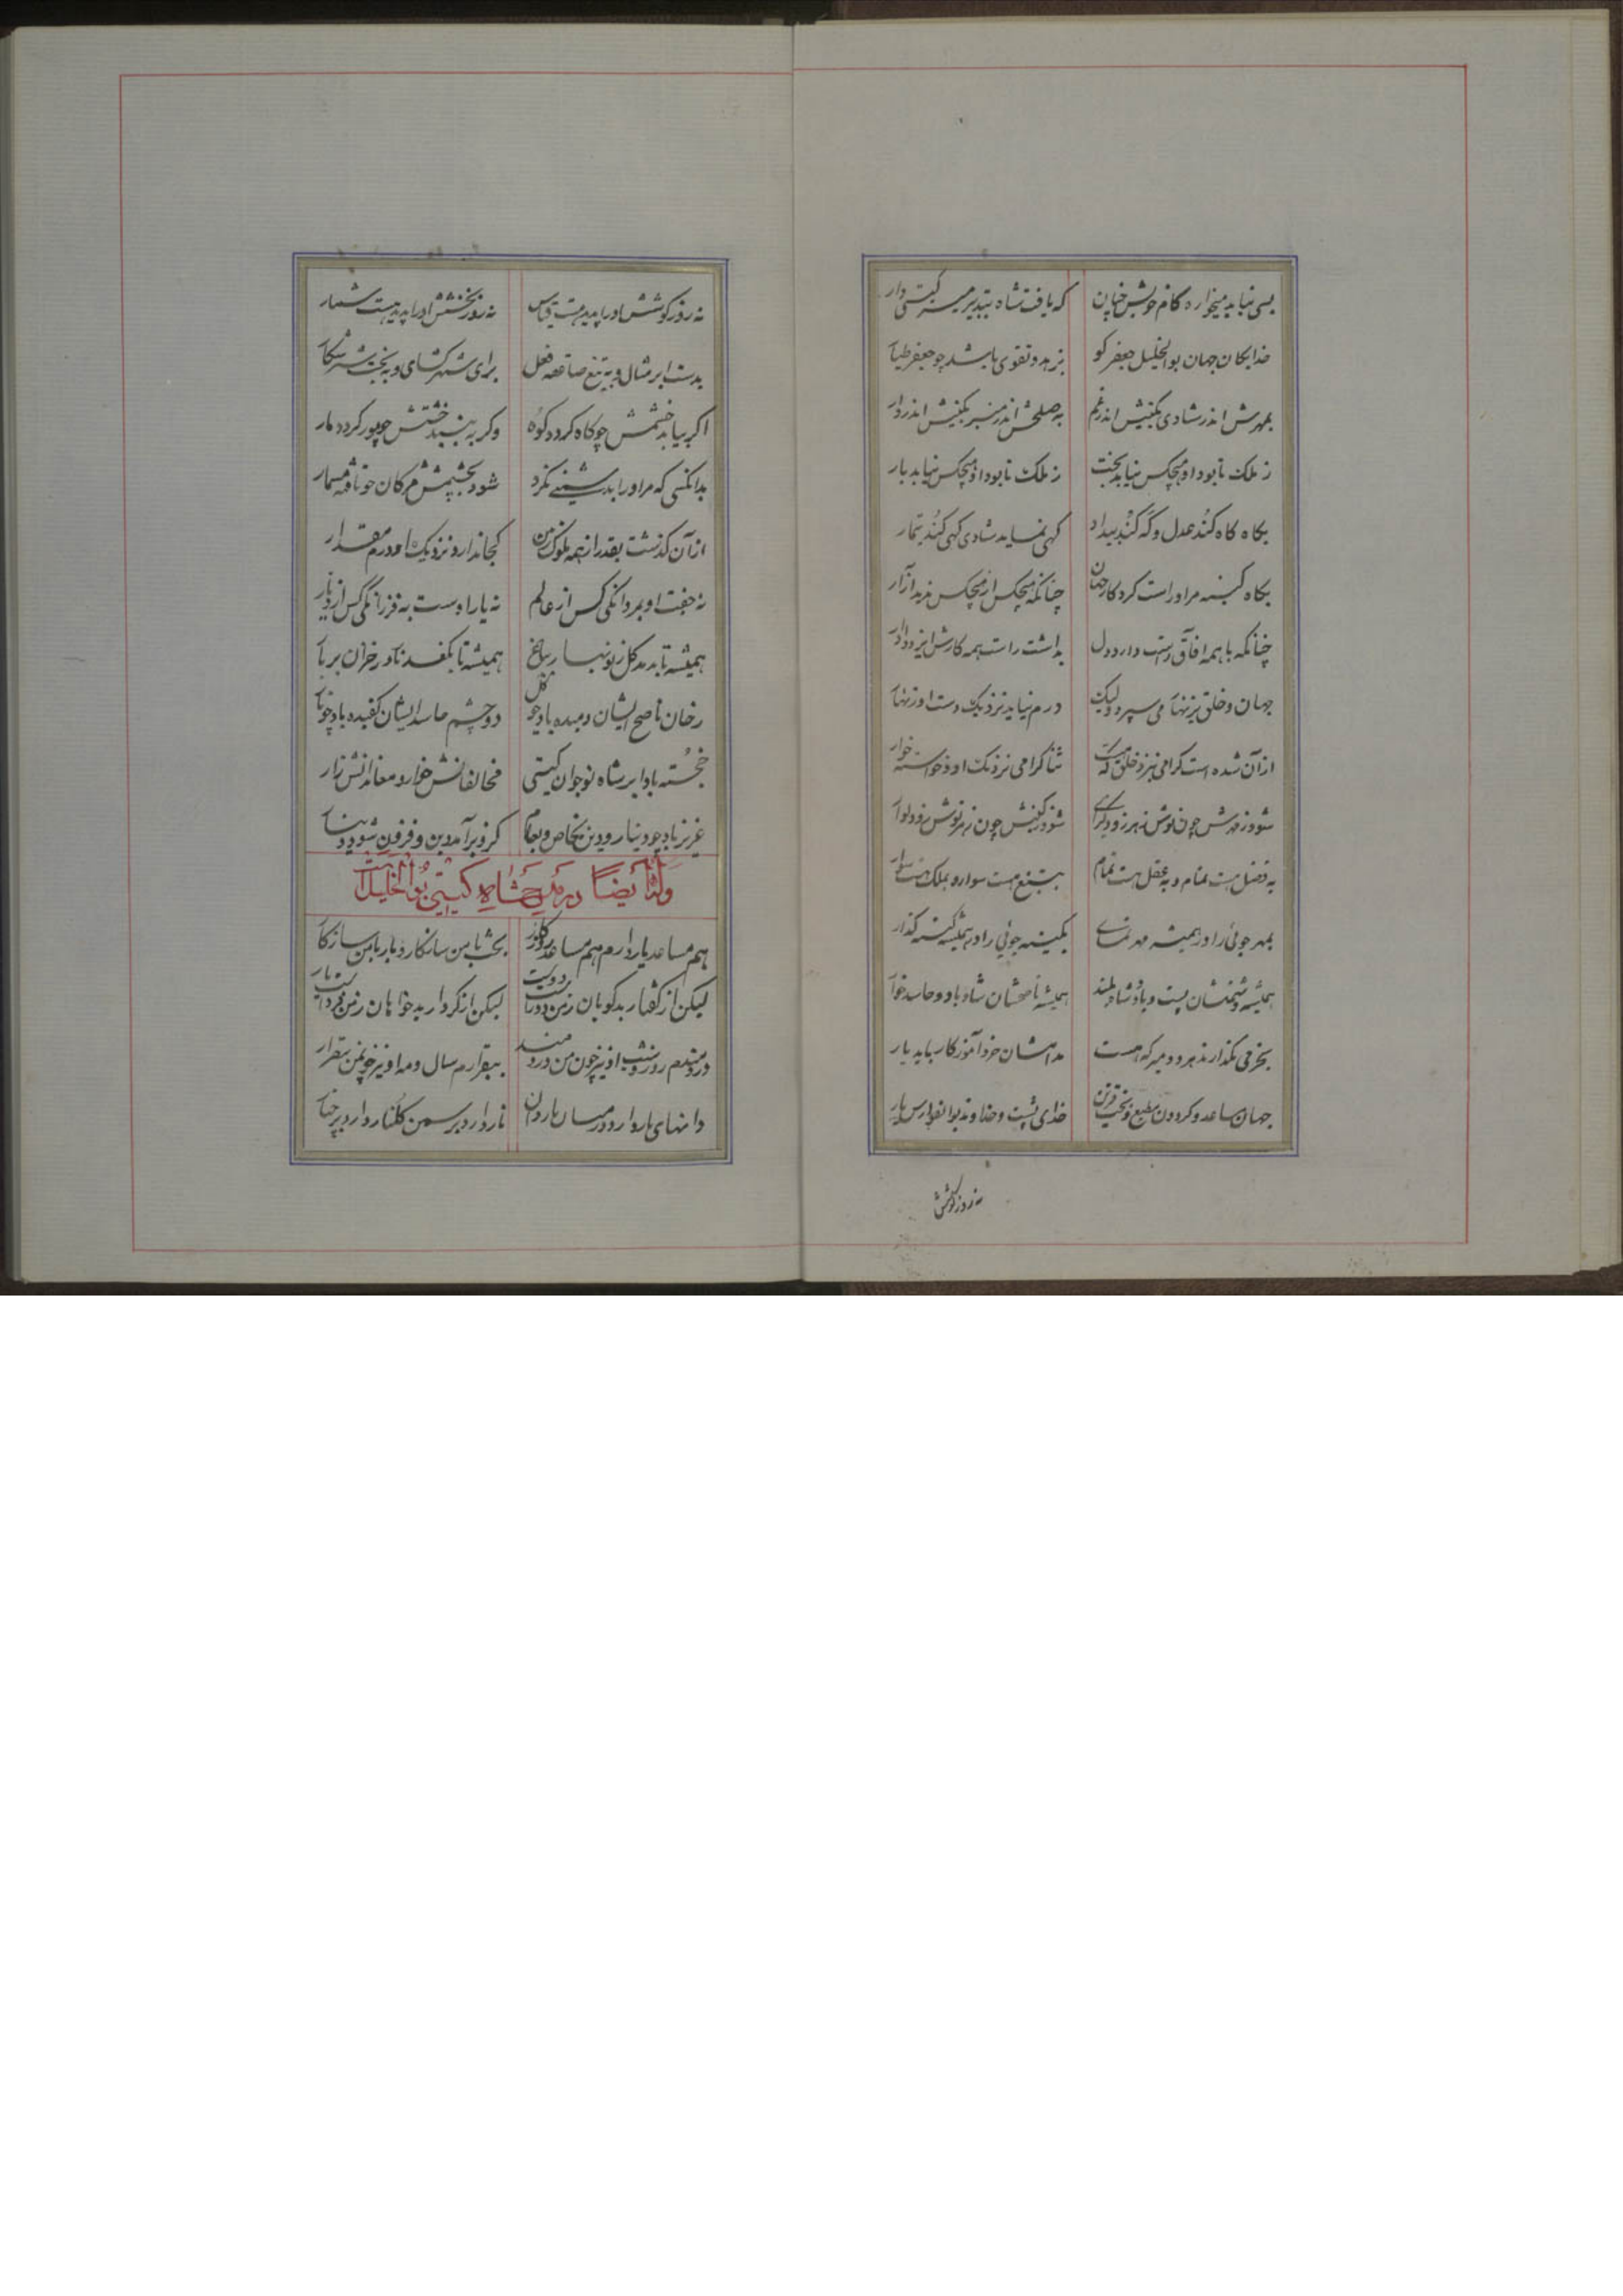 بسی نیاید میخواره کام خویش چنان که یافت شاه بتدبیر میر گیتی دار
خدایکان جهان بوالخلیل جعفر کو بزهد و تقوی باشد چو جعفر طیار
بمهرش اندر شادی بکینش اندر غم به صلحش اندر منبر بکینش اندر دار
ز ملک تا بود او هیچکس نیابد تخت ز ملک تا بود او هیچکس نیابد بار
بکاه کاه کند عدل و که کند بیداد کهی نماید شادی کهی کند تیمار
بکاه کینه مر او راست کرد کار جهان چنانکه هیچکس از هیچکس ندید آزار
چنانکه با همه آفاق راست دارد دل بداشت راست همه کارش ایزد دادار
جهان و خلق بزنهار می سپرد ولیک درم نیابد نزدیک دست او زنهار
ازآن شده است کرامی بنزد خلق که هست ثنا کرامی نزدیک او و خواسته خوار
شود ز مهرش چون نوش زهر زود کرای شود ز کینش چون زهر نوش زود کوار
به فضل هست تمام و به عقل هست تمام بتیغ هست سوار و بملک هست سوار
بمهر جوئی را در همیشه مهر نمای بکینه جوئی را در همیشه کینه کذار
همیشه دشمنشان پست و باد شاه بلند همیشه ناصحشان شاد باد و حاسد خوار
جهان مساعد و کردون مطیع و بخت قرین خدای پشت و خداوند بوالفوارس یار
نه روز کوشش
نه روز کوشش او را پدید هست قیاس نه روز بخشش او را پدید هست شمار
بدست ابر مثال و به تیغ صاعقه فعل برای شهر کشای و به بخت شیر شکار
اکر بیابد خشمش چو کاه کردد کوه وکر به بیند ختش چو مور کردد مار
بدانکسی که مر او را بدشمنی نکرد شود بچشمش مژکان خونافه مسمار
ازآن کذشت بقدر از همه ملوک زمن کجا ندارد نزدیک او درم مقدار
نه جفت او بمردانکی کس از عالم نه یار اوست به فرزانکی کس از دیار
همیشه تا بدمد کل ز نوبهار بباغ همیشه تا بکفد نار در خزان بر بار
رخان ناصح ایشان دمیده باد چو کل دو چشم حاسد ایشان کفیده باد چو نار
خجسته بادا بر شاه نوجوان کیتی مخالفانش خوار و معاندانش زار
عزیز باد چو دینار و دین بخاص و بعام کزو برآمد دین و فزون شود دینار
وله ایضا در مدح شاه کیتی بو الخلیل است
هم مساعد یار دارم هم مساعد روزکار بخت با من سازکار و یار با من سازکار
لیکن از کفتار بدکویان ز من دورست دوست لیکن از کردار بدخواهان ز من فردست یار
دردمندم روز و شب او نیز چون من دردمند بیقرارم سال و مه او نیز چون من بیقرار
دانهای نار دارد در میان ناردان نار دارد بر سمن کلنار دارد بر چنار